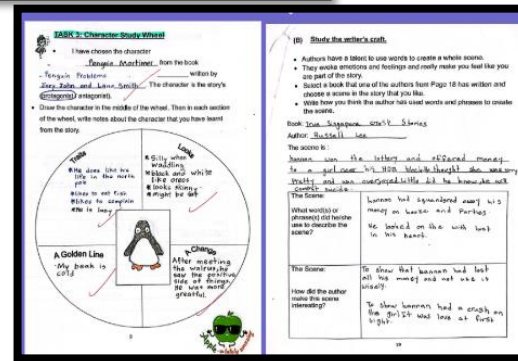 TASK 3: Character Study Wheel
I have chosen the character
Penguin Mortimer from the book
- Penguin Problems written by
Jory John and Lane Smith. The character is the story's
(protagonist/ antagonist).
Draw the character in the middle of the wheel. Then in each section
of the wheel, write notes about the character that you have learnt
from the story.
Traits
He does like his
life in the north
pole
likes to eat fish
likes to complain
He is lazy
Looks
Silly when
waddling
black and white
like oreos
looks skinny
might be fat
A Golden Line
-My beak is
cold
A Change
After meeting
the walrus, he
saw the positive
side of things.
He was more
greatful.
(B) Study the writer's craft.
Authors have a talent to use words to create a whole scene.
They evoke emotions and feelings and really make you feel like you
are part of the story.
Select a book that one of the authors from Page 18 has written and
choose a scene in the story that you like.
Write how you think the author has used words and phrases to create
the scene.
Book: True Singapore Ghost Stories
Author: Russell Lee
The scene is:
hannan won the lottery and offered money
to a girl near his HDB block. He thought she was very
Pretty and was overjoyed. little did he know, she
The Scene:
What word(s) or
phrase(s) did he/she
use to describe the
scene?
hannan had squandered away his
money on house and Parties
He looked on the with lust
in his heart.
The Scene:
How did the author
make this scene
interesting?
To show that hannan had lost
all his money and not use it
wisely.
To show hannan had a crush on
the girl it was love at first
sight.